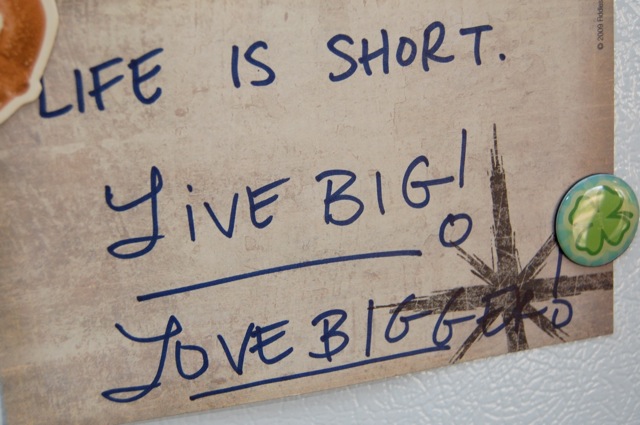 LIFE IS SHORT.
LiVE BIG!
LOVE BIGGER!
© 2009